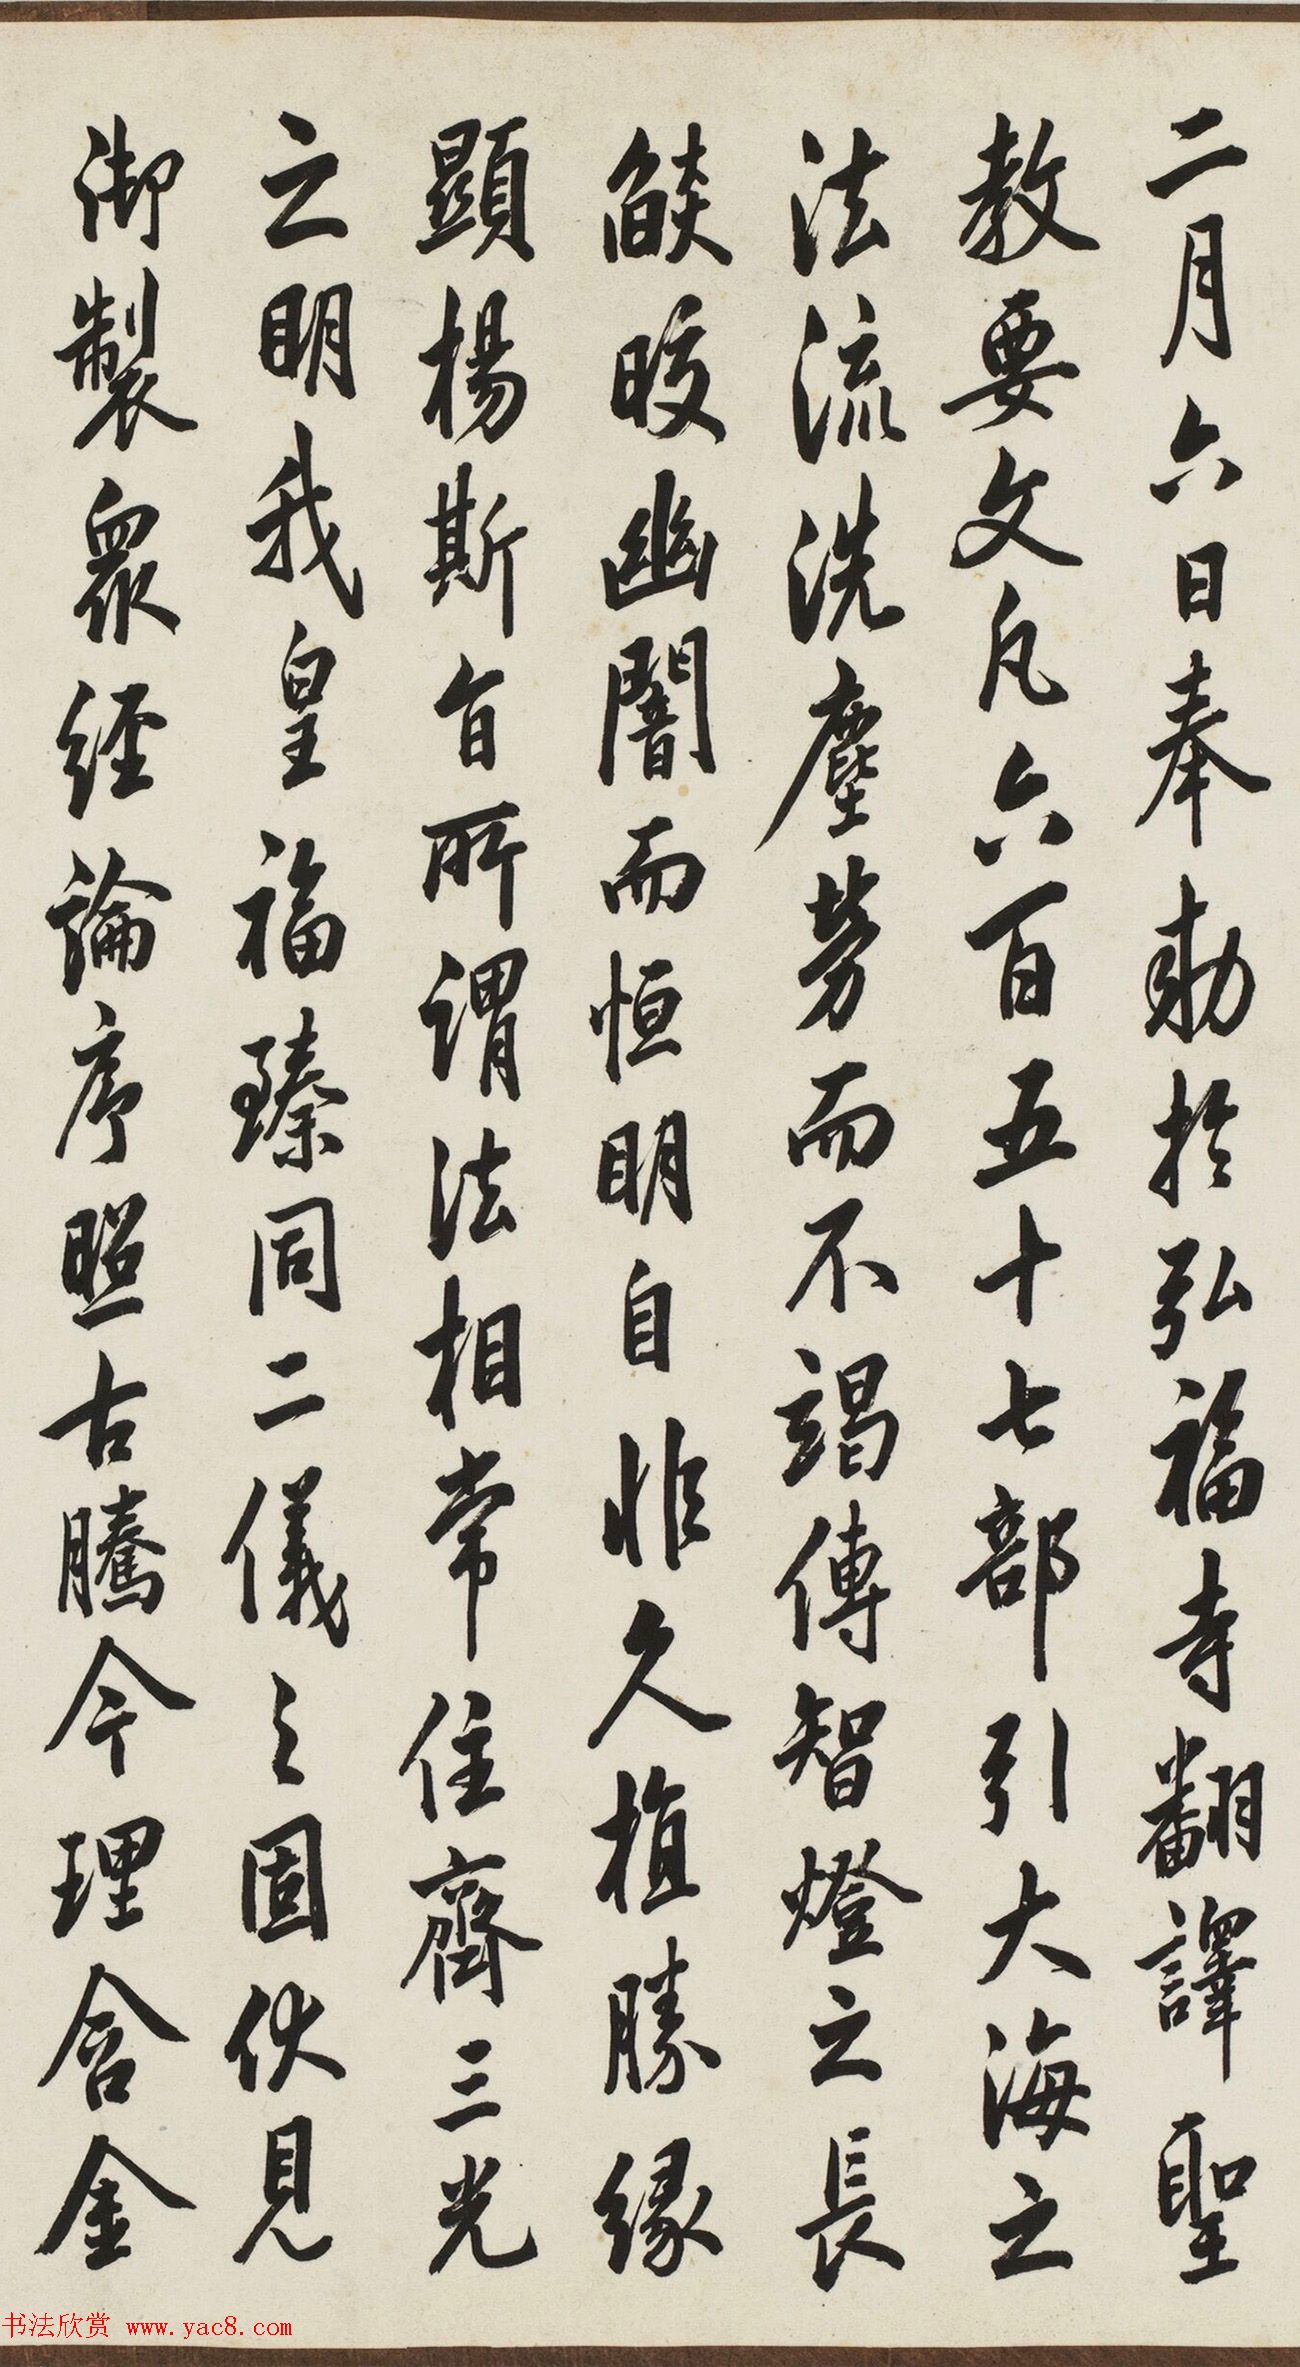 二月六日奉勅於弘福寺翻譯聖
教要文凡六百五十七部引大海之
法流洗塵勞而不竭傳智燈之長
燄皎幽闇而恒明自非久植勝緣
顯楊斯旨所謂法相常住齊三光
之明我皇福臻同二儀之固伏見
御製眾經論序照古騰今理含金
书法欣赏 www.yac8.com